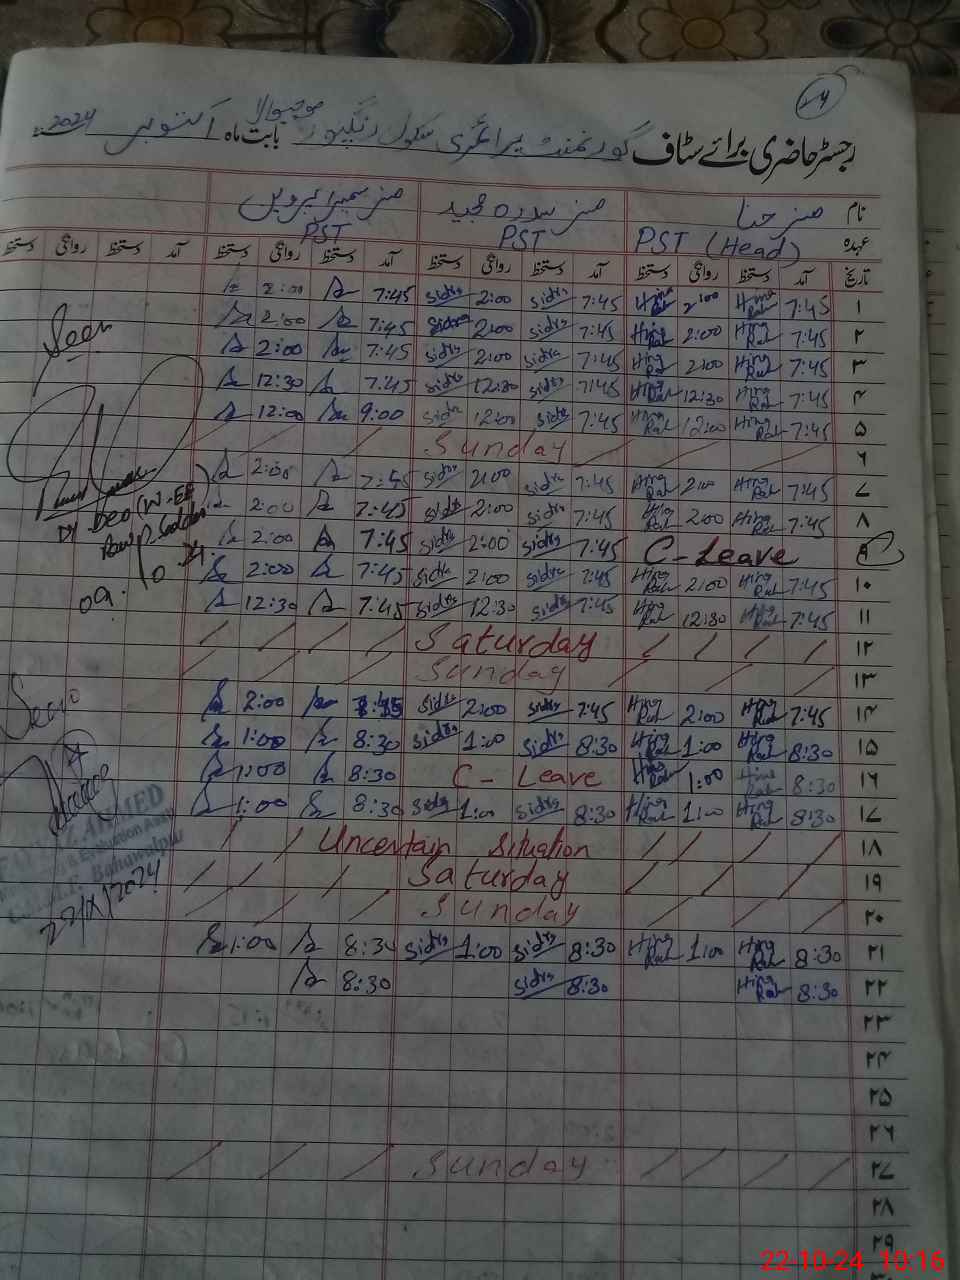 رجسٹر حاضری برائے سٹاف گورنمنٹ پرائمری سکول رنگپور موجیوالا بابت ماہ اکتوبر 2024
نام مسز حنا مسز سدرہ مجید مسز سمیرا پروین
عہدہ PST (Head) PST PST
تاریخ آمد دستخط روانگی دستخط آمد دستخط روانگی دستخط آمد دستخط روانگی دستخط آمد دستخط روانگی دستخط
۱ 7:45 Hina 2:00 Hina 7:45 Sidra 2:00 Sidra 7:45 2:00
۲ 7:45 Hina 2:00 Hina 7:45 Sidra 2:00 Sidra 7:45 2:00
۳ 7:45 Hina 2:00 Hina 7:45 Sidra 2:00 Sidra 7:45 2:00
۴ 7:45 Hina 12:30 Hina 7:45 Sidra 12:30 Sidra 7:45 12:30
۵ 7:45 Hina 12:00 Hina 7:45 Sidra 12:00 Sidra 9:00 12:00
۶ Sunday
۷ 7:45 Hina 2:00 Hina 7:45 Sidra 2:00 Sidra 7:45 2:00
۸ 7:45 Hina 2:00 Hina 7:45 Sidra 2:00 Sidra 7:45 2:00
۹ C-Leave 7:45 Sidra 2:00 Sidra 7:45 2:00
۱۰ 7:45 Hina 2:00 Hina 7:45 Sidra 2:00 Sidra 7:45 2:00
۱۱ 7:45 Hina 12:30 Hina 7:45 Sidra 12:30 Sidra 7:45 12:30
۱۲ Saturday
۱۳ Sunday
۱۴ 7:45 Hina 2:00 Hina 7:45 Sidra 2:00 Sidra 2:00
۱۵ 8:30 Hina 1:00 Hina 8:30 Sidra 1:00 Sidra 8:30 1:00
۱۶ 8:30 Hina 1:00 Hina C-Leave 8:30 1:00
۱۷ 8:30 Hina 1:00 Hina 8:30 Sidra 1:00 Sidra 8:30 1:00
۱۸ Uncertain Situation
۱۹ Saturday
۲۰ Sunday
۲۱ 8:30 Hina 1:00 Hina 8:30 Sidra 1:00 Sidra 8:30 1:00
۲۲ 8:30 Hina 8:30 Sidra 8:30
۲۳
۲۴
۲۵
۲۶
۲۷ Sunday
۲۸
۲۹
Seen
Dy Deo (W-EE)
09. 10
Seen
AHMED
& Evaluation
Bahawalpur
22/X/2024
22-10-24 10:16